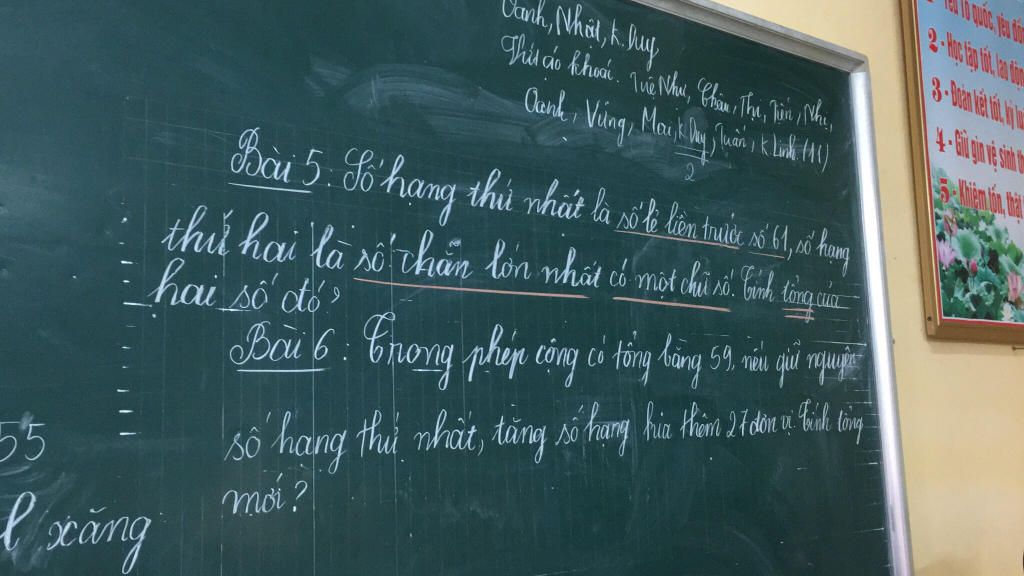 Oanh, Nhật, K. Duy
Thiếu áo khoác. Tuệ Như, Châu, Thụ, Tiến, Nhi,
Oanh, Vừng, Mơ, K Duy, Tuấn, K Linh (11)
2
Bài 5. Số hạng thứ nhất là số lẻ liền trước số 61, số hạng
thứ hai là số chẵn lớn nhất có một chữ số. Tính tổng của
hai số đó?
Bài 6: Trong phép cộng có tổng bằng 59, nếu giữ nguyên
số hạng thứ nhất, tăng số hạng kia thêm 27 đơn vị. Tính tổng
mới?
55
l xăng
1 - Yêu Tổ quốc, yêu đồ
2 - Học tập tốt, lao độn
3 - Đoàn kết tốt, kỷ lu
4 - Giữ gìn vệ sinh th
5 - Khiêm tốn, thật